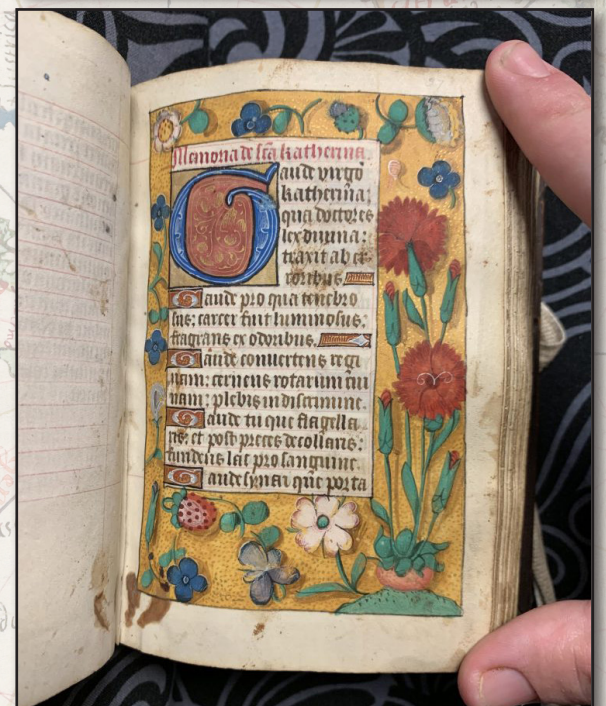 Memoria de scā katherina.
Gaude virgo
katherina:
qua doctores
lex divina:
traxit ab er-
roribus
Gaude pro qua tenebro
sus: carcer fuit luminosus:
fragrans ex odoribus.
Gaude convertens regi
nam: cernens rotarum rui
nam: plebis in discrimine.
Gaude tu que flagella
ris: et post preces decollaris:
fundens lac pro sanguine.
Gaude synai que porta